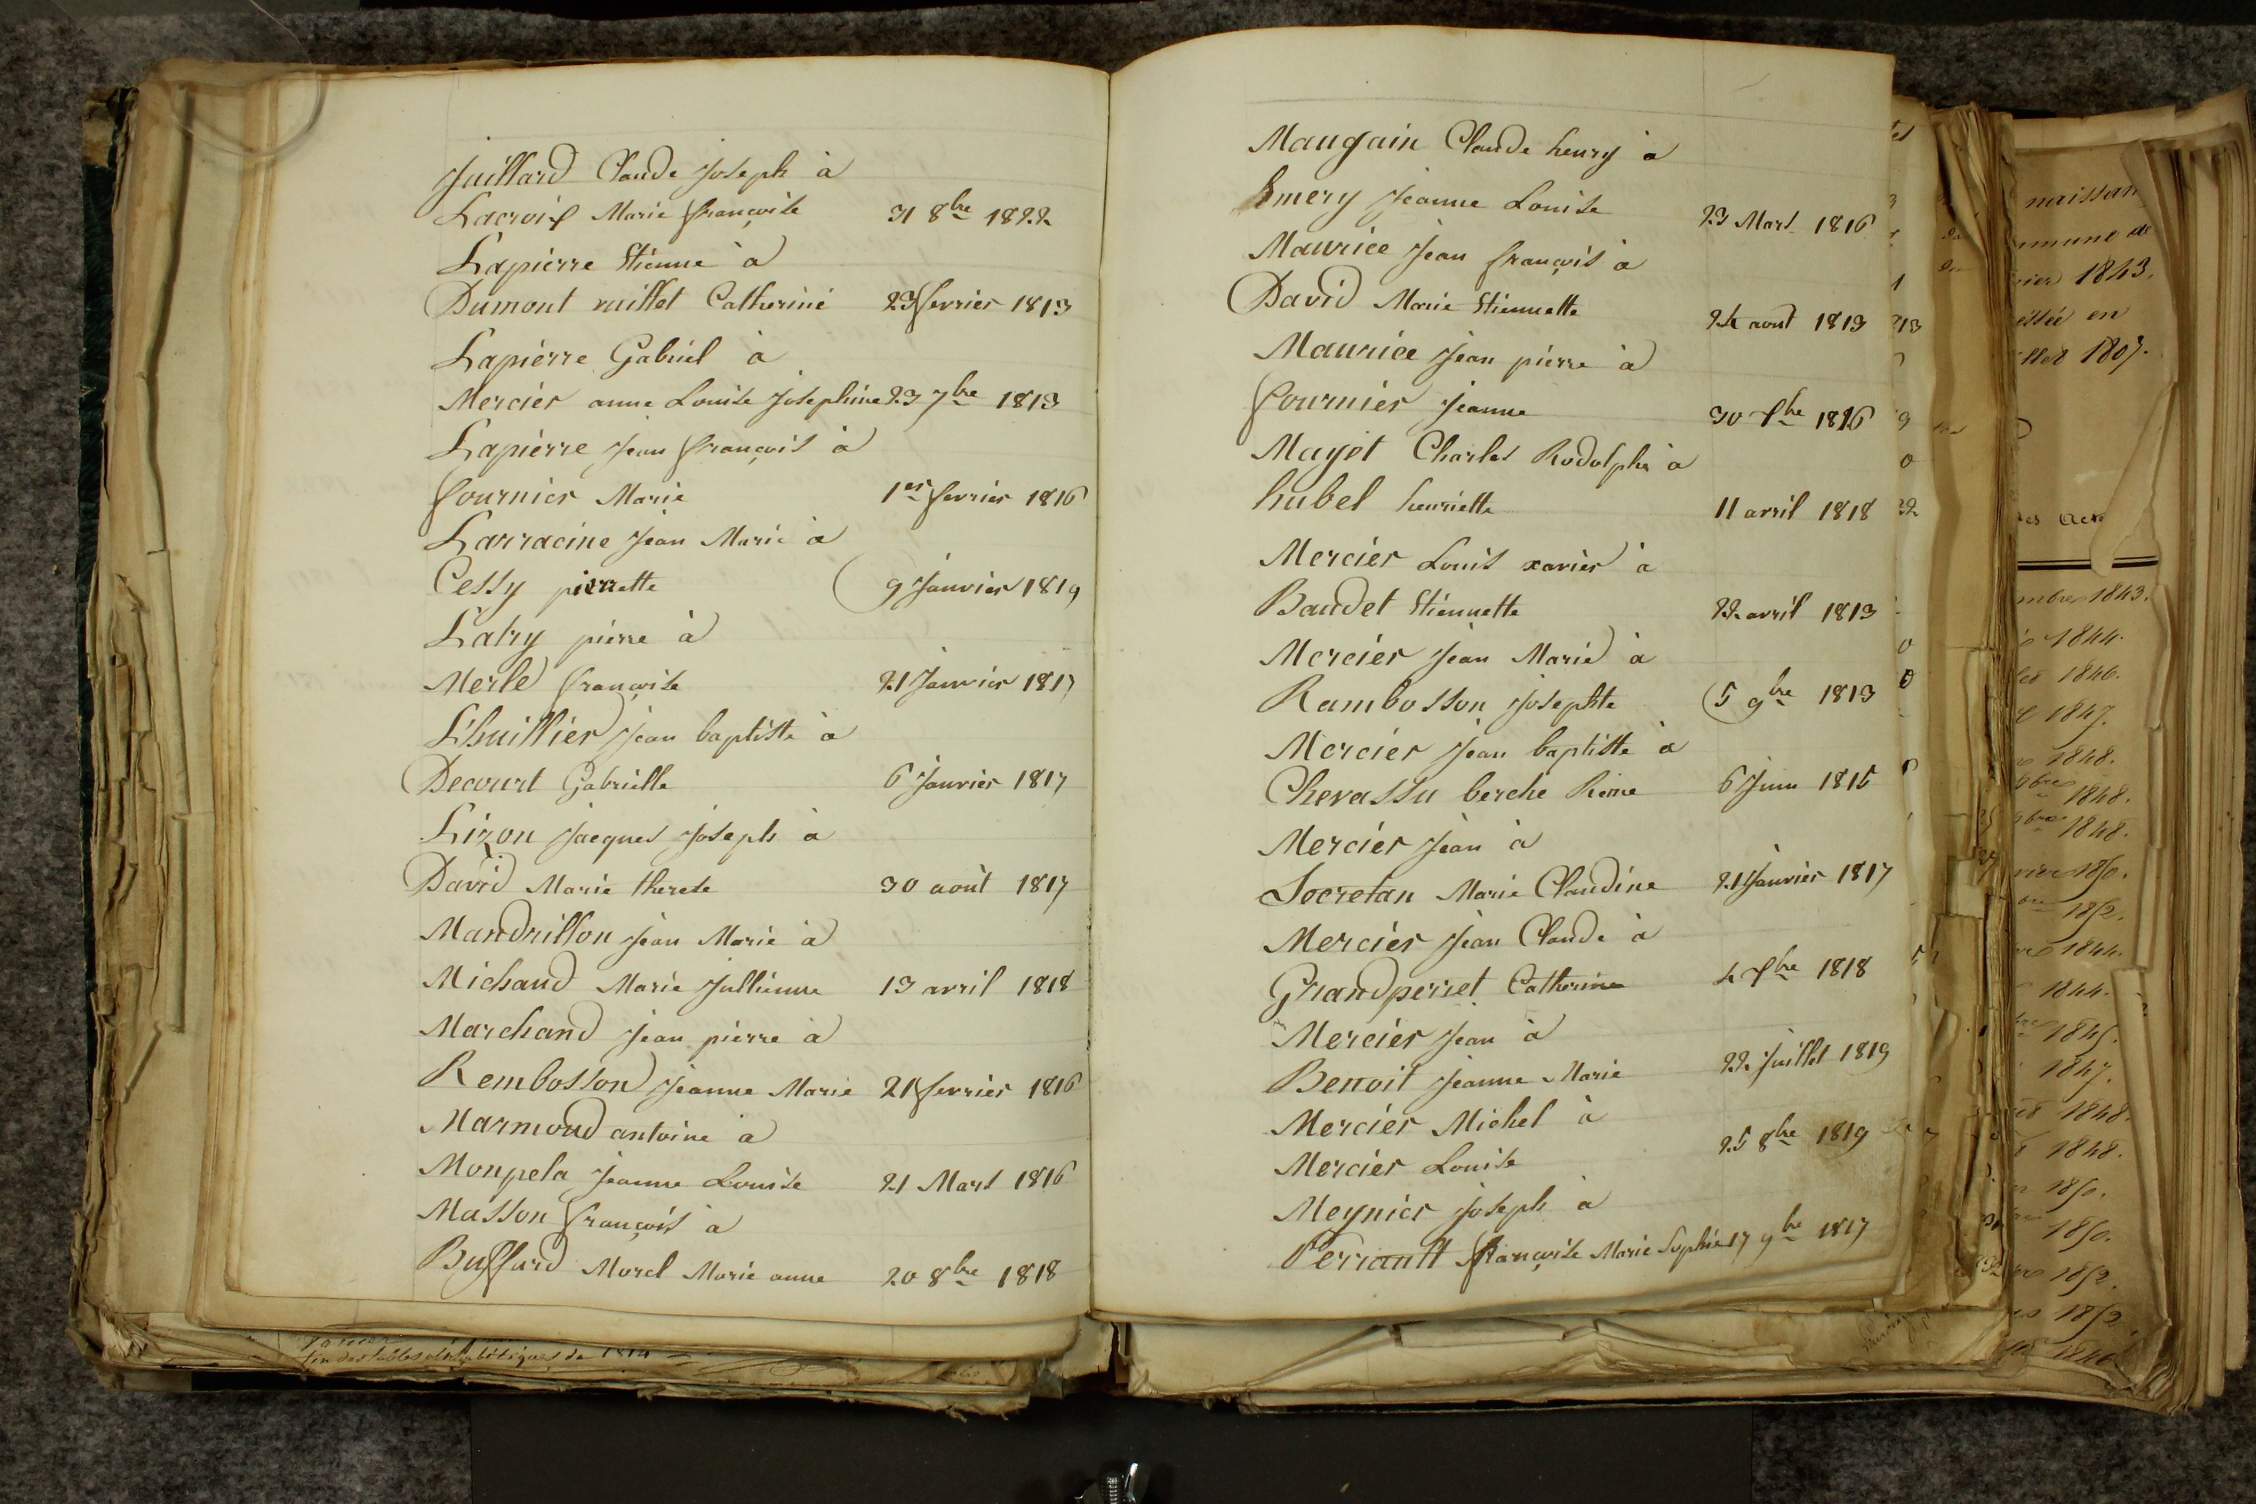 Juillard Claude Joseph à
Lacroix Marie françoise 31 8bre 1822
Lapierre Etienne à
Dumont vuillet Catherine 23 fevrier 1813
Lapierre Gabriel à
Mercier anne Louise Josephine 23 7bre 1813
Lapierre Jean françois à
fournier Marie 1er fevrier 1816
Larracine Jean Marie à
Cessy pierrette 9 Janvier 1819
Latry pierre à
Merle françoise 21 Janvier 1817
L'huillier Jean baptiste à
Decourt Gabrielle 6 Janvier 1817
Lizon Jacques Joseph à
David Marie therese 30 août 1817
Mandrillon Jean Marie à
Michaud Marie Jullienne 13 avril 1818
Marchand Jean pierre à
Rembosson Jeanne Marie 21 fevrier 1816
Marmoud antoine à
Monpela Jeanne Louise 21 Mars 1816
Masson françois à
Buffard Morel Marie anne 20 8bre 1818
fin des tables alphabétiques de
Maugain Claude henry à
Emery Jeanne Louise 23 Mars 1816
Maurice Jean françois à
David Marie Etiennette 24 aout 1813
Maurice Jean pierre à
fournier Jeanne 30 Xbre 1816
Mayet Charles Rodolphe à
hubel henriette 11 avril 1818
Mercier Louis xavier à
Baudet Etiennette 22 avril 1813
Mercier Jean Marie à
Rambosson Josephte 5 9bre 1813
Mercier Jean baptiste à
Chevassu berche Reine 6 Juin 1815
Mercier Jean à
Socretan Marie Claudine 21 Janvier 1817
Mercier Jean Claude à
Grandperret Catherine 4 Xbre 1818
Mercier Jean à
Benoit Jeanne Marie 22 Juillet 1819
Mercier Michel à
Mercier Louise 25 8bre 1819
Meynier Joseph à
Perriault françoise Marie Sophie 17 9bre 1817
naissan
1843.
en
1807.
1843.
1844.
1846.
1847.
1848.
1848.
1848.
1850.
1852.
1844.
1844.
1845.
1847.
1848.
1848.
1850.
1850.
1852.
1852